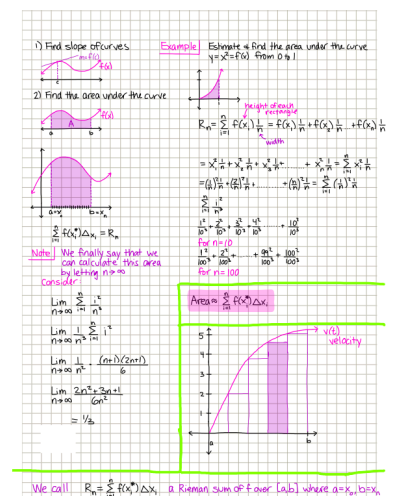 1) Find slope of curves
m=f'(c)
f(x)
c
2) Find the area under the curve
f(x)
A
a=x₀ b=xₙ
n Σ i=1 f(xᵢ*)Δxᵢ = Rₙ
Note We finally say that we
can calculate this area
by letting n→∞
Consider
Lim n→∞ n Σ i=1 i²/n³
Lim n→∞ 1/n³ n Σ i=1 i²
Lim n→∞ 1/n² · (n+1)(2n+1)/6
Lim n→∞ 2n²+3n+1/6n²
= 1/3
Example Estimate & find the area under the curve
y=x²=f(x) from 0 to 1
height of each
rectangle
Rₙ= n Σ i=1 f(xᵢ)1/n = f(x₁)1/n + f(x₂)1/n + f(xₙ)1/n
width
= x₁²1/n + x₂²1/n + x₃²1/n + ...... + xₙ²1/n = n Σ i=1 xᵢ²1/n
=(1/n)²1/n + (2/n)²1/n + ........ + (n/n)²1/n = n Σ i=1 (i/n)²1/n
n Σ i=1 i²/n³
1²/10³ + 2²/10³ + 3²/10³ + 4²/10³ + ....... 10²/10³
for n=10
1²/100³ + 2²/100³ + ...... + 99²/100³ + 100²/100³
for n=100
Area≈ n Σ i=1 f(xᵢ*)Δxᵢ
v(t)
velocity
5
4
3
2
1
a b
We call Rₙ= n Σ i=1 f(xᵢ*)Δxᵢ a Rieman sum of f over [a,b] where a=x₀, b=xₙ